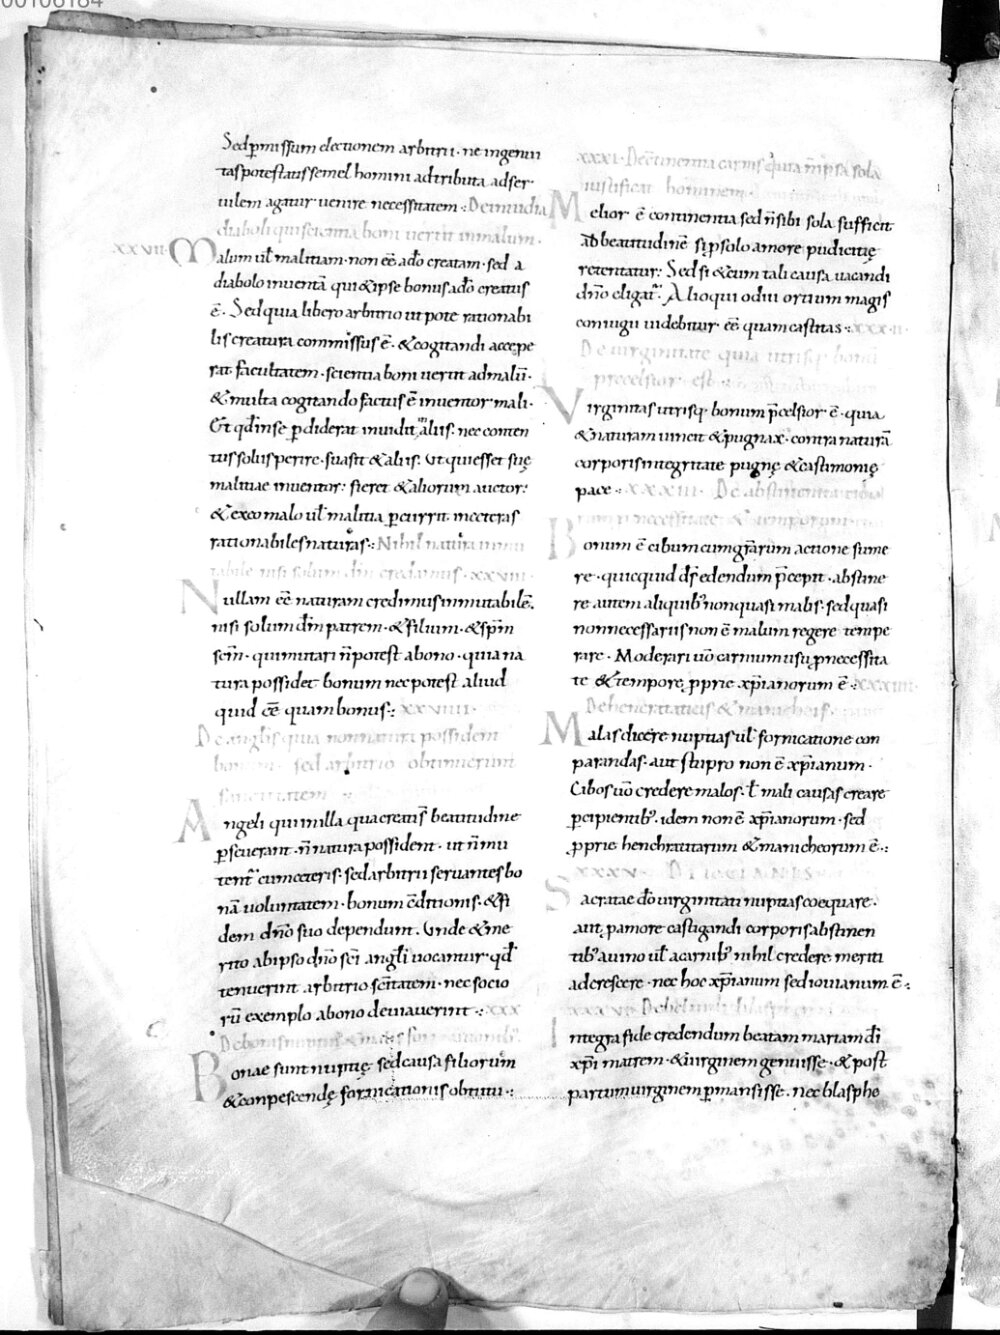 00106184
Sed p̄missum electionem arbitrii · ne ingenii
tas potestatis semel homini adtributa ad ser
uilem agatur uenire necessitatem : De inuidia
diaboli qui scientia boni uertit in malum ·
XXVII · Malum ul̄ malitiam · non eē a dō creatam · sed a
diabolo inuentā qui & ipse bonus a dō creatus
ē · Sed quia libero arbitrio ut pote rationabi
lis creatura commissus ē · & cogitandi accepe
rat facultatem · scientia boni uertit ad malū ·
& multa cogitando factus ē inuentor mali ·
Et qđ in se p̄diderat inuidit aliis · nec conten
tus solus perire · suasit & aliis · Ut qui esset suę
malitiae inuentor : fieret & aliorum auctor :
& ex eo malo ul̄ malitia p̄currit in ceteras
rationabiles naturas : Nihil natura inmu
tabile nisi solum dm̄ credamus · XXVIII ·
Nullam eē naturam credimus inmutabilē ·
nisi solum dm̄ patrem · & filium · & spm̄
scm̄ · qui mutari n̄ potest a bono · quia na
tura possidet bonum nec potest aliud
quid eē quam bonus : XXVIIII ·
De anglis quia non natura possident
bonum sed arbitrio obtinuerunt

Angeli qui in illa qua creati s̄ beatitudine
p̄seuerant · n̄ natura possident · ut n̄ mu
tent̄ cum ceteris · sed arbitrii seruantes bo
nā uoluntatem · bonum cōditionis · & fi
dem dn̄o suo dependunt · Unde & me
rito ab ipso dn̄o sc̄i angli uocantur · qđ
tenuerint arbitrio sc̄itatem · nec socio
rū exemplo a bono deuiauerint : XXX
De bonis nuptiis
Bonae sunt nuptię sed causa filiorum
& conpescendę fornicationis obtitu :
XXXI · De c̄tinentia carnis quia n̄ ipsa sola
iustificat hominem ·
Melior ē continentia sed n̄ sibi sola sufficit
ad beatitudinē si p̄ solo amore pudicitię
retentatur : Sed si & cum tali causa uacandi
dn̄o eligat̄ · Alioqui odiū ortum magis
coniugii uidebitur eē quam castitas : XXXII ·
De uirginitate quia utrisq · bonū
precelsior est
Virginitas utrisq · bonum p̄celsior ē · quia
& naturam uincit & pugnax · contra naturā
corporis integritate pugnę & castimonię
pace : XXXIII · De abstinentia cibo
rum p necessitate & temporum
Bonum ē cibum cum gr̄arum actione sume
re · quicquid ds̄ edendum p̄cepit · abstine
re autem aliquib; non quasi malis · sed quasi
non necessariis non ē malum regere tempe
rare · Moderari uō carnium usū p necessita
te & tempore, p̄prie xp̄ianorum ē : XXXIIII
De heneratiacis & manicheis ·
Malas dicere nuptias ul̄ fornicatione con
parandas · aut stupro non ē xp̄ianum ·
Cibos uō credere malos · ul̄ mali causas creare
p̄cipientib; · idem non ē xp̄ianorum · sed
p̄prie henchratitarum & manicheorum ē :
XXXV · DIIOCIANIS
Sacratae dō uirginitati nuptias coequare ·
aut, p amore castigandi corporis abstinen
tib; a uino ul̄ a carnib; nihil credere meriti
adcrescere · nec hoc xp̄ianum sed iouianum ē :
De heluidii blasphemia
Integra fide credendum beatam mariam dī
xp̄i matrem · & uirginem genuisse · & post
partum uirginem p̄mansisse · nec blasphe